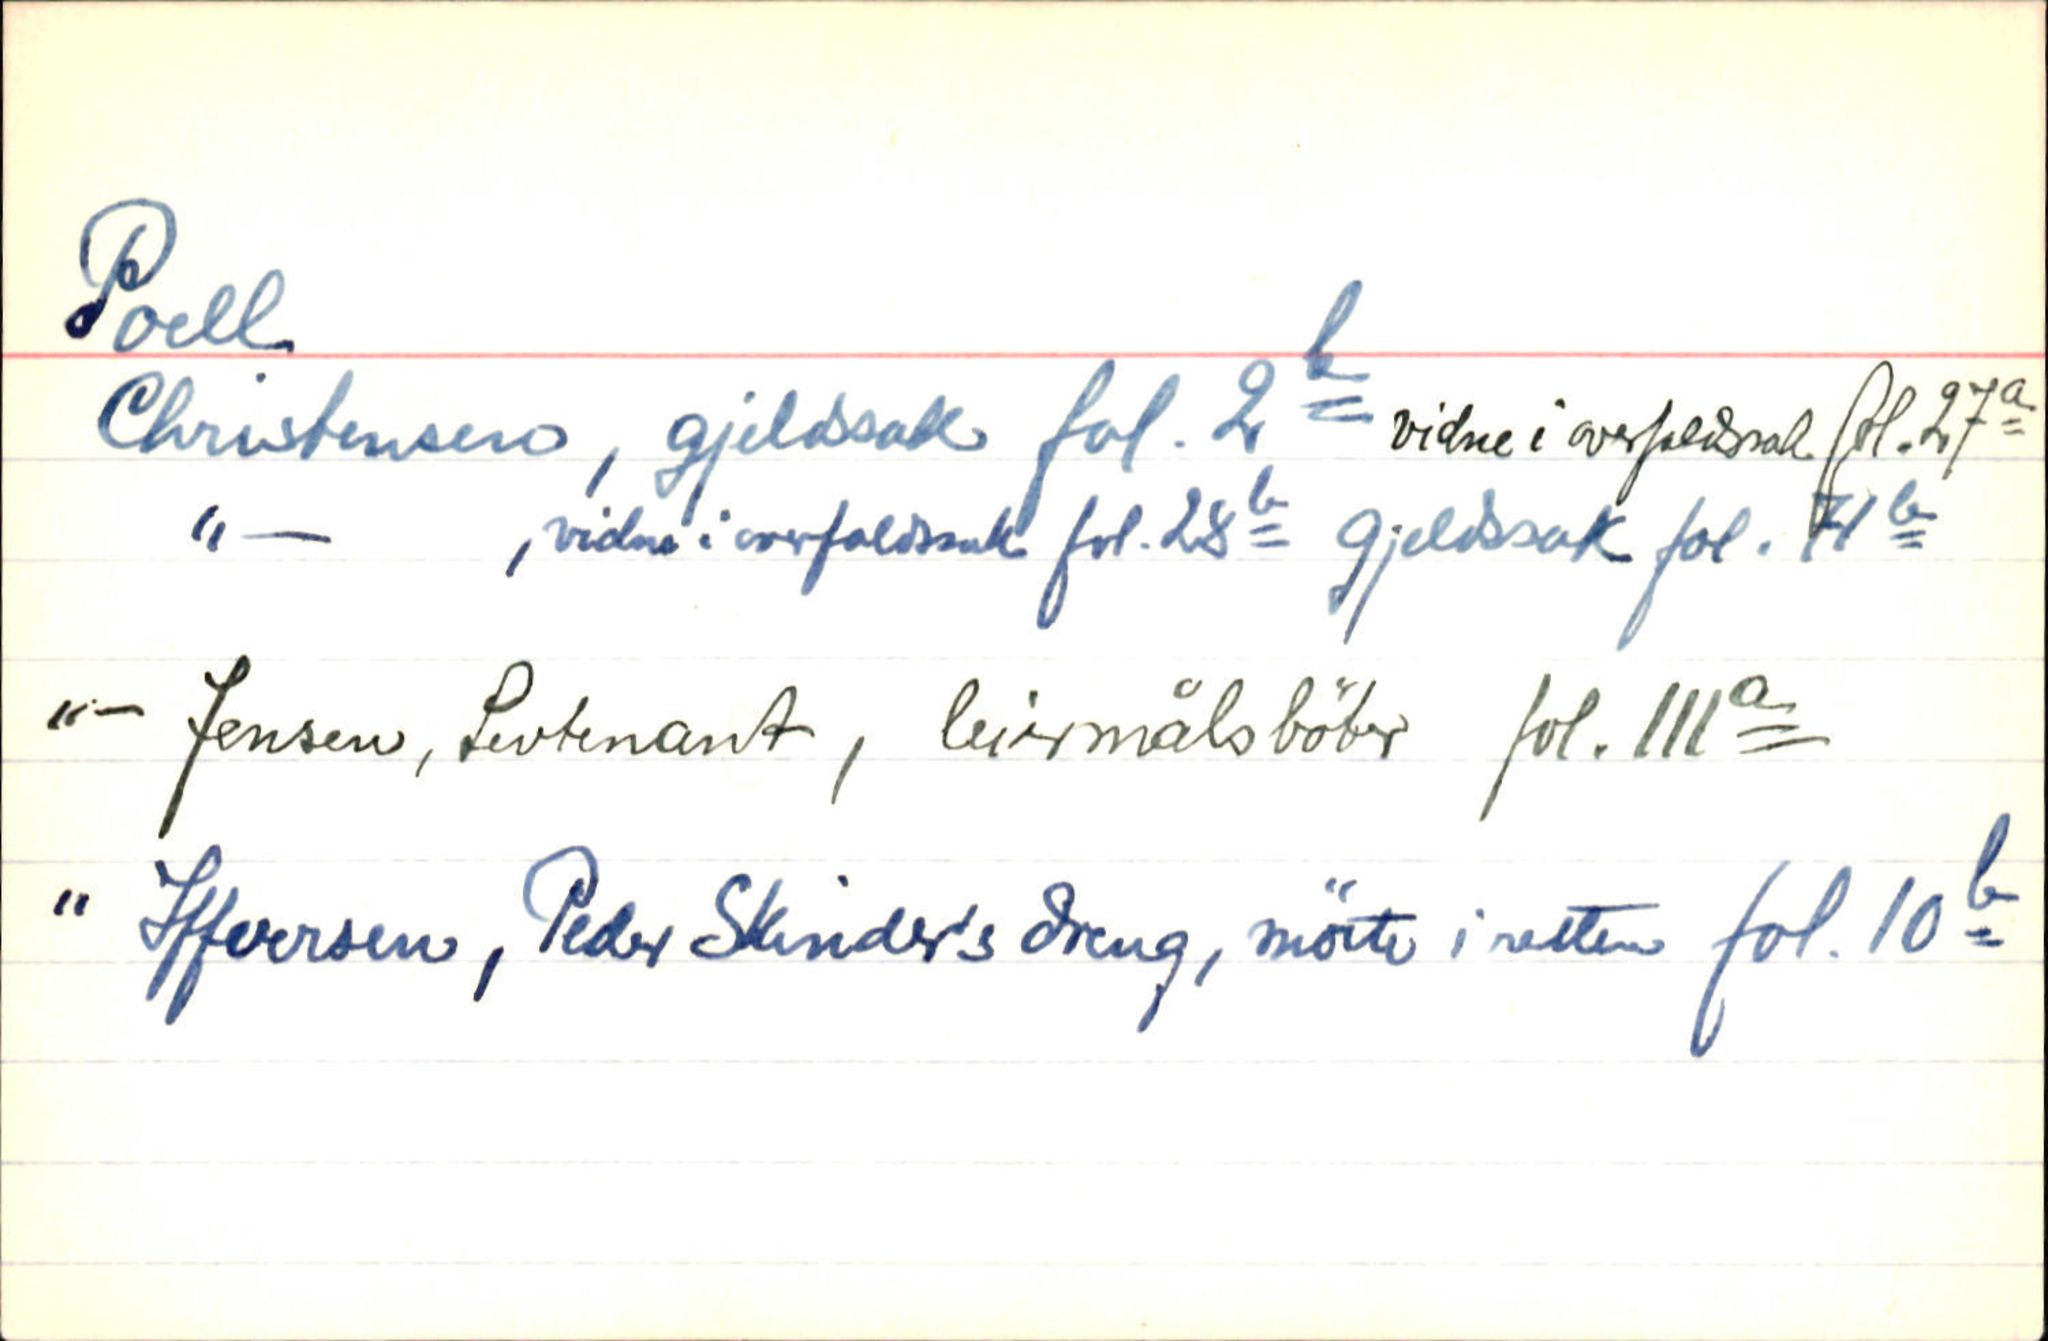 Poell
Christensen, gjeldssak fol. 2b vidne i overfaldssak fol. 27a
"— , vidne i overfaldssak fol. 28b gjeldssak fol. 71b
"— Jensen, Leutenant, leiermålsböter fol. 111a
" Iffversen, Peder Skinder's dreng, mötte i retten fol. 10b